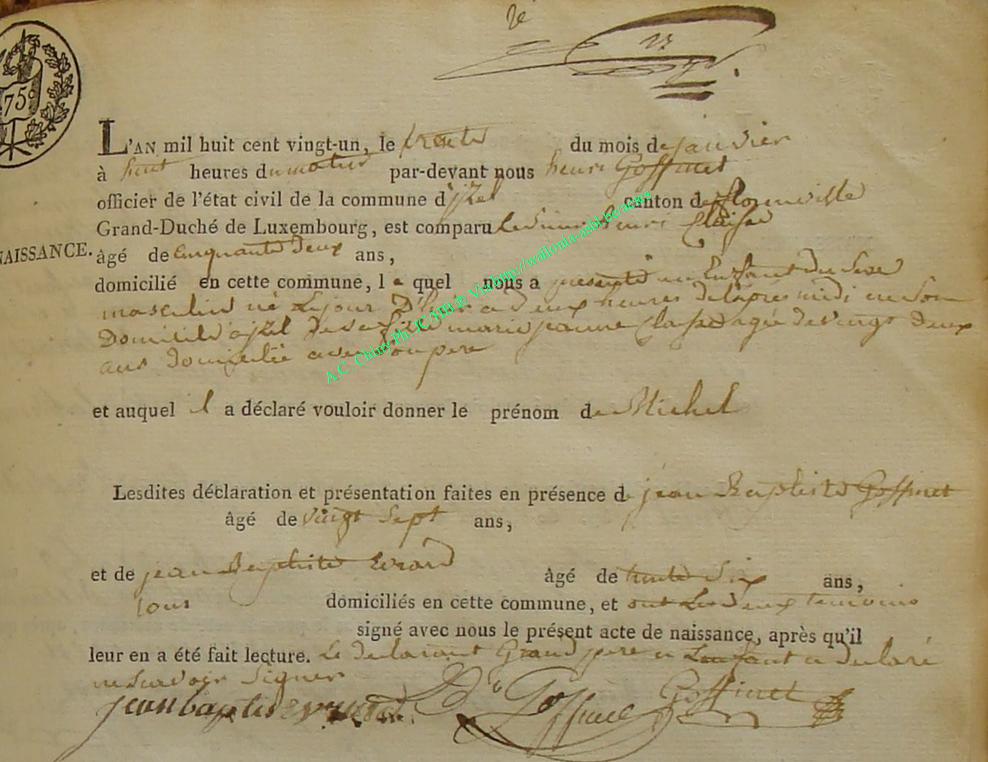 2e
75c
L'AN mil huit cent vingt-un, le trente du mois de janvier
à huit heures du matin par-devant nous henri Goffinet
officier de l'état civil de la commune d'jzel canton de florenville
Grand-Duché de Luxembourg, est comparu Le sieur henri Claisse
NAISSANCE. âgé de Cinquante deux ans,
domicilié en cette commune, le quel nous a presenté un Enfant du Sexe
masculin né Le jour D'hier a deux heures de l'apres midi en Son
Domicile a jzel de sa fille marie jeanne Claisse agée de vingt deux
ans domiciliée avec son pere
et auquel il a déclaré vouloir donner le prénom de Michel
Lesdites déclaration et présentation faites en présence de jean Baptiste Goffinet
âgé de vingt Sept ans,
et de jean Baptiste Evrard âgé de trente Six ans,
tous domiciliés en cette commune, et ont Les deux temoins
signé avec nous le présent acte de naissance, après qu'il
leur en a été fait lecture. Le declarant Grand pere a Lenfant a declaré
ne Savoir Signer
jean baptiste evrard Bte Goffinet Goffinet
A.C. Chiny Ph. E. Sim &
http://wallonia-asbl.be